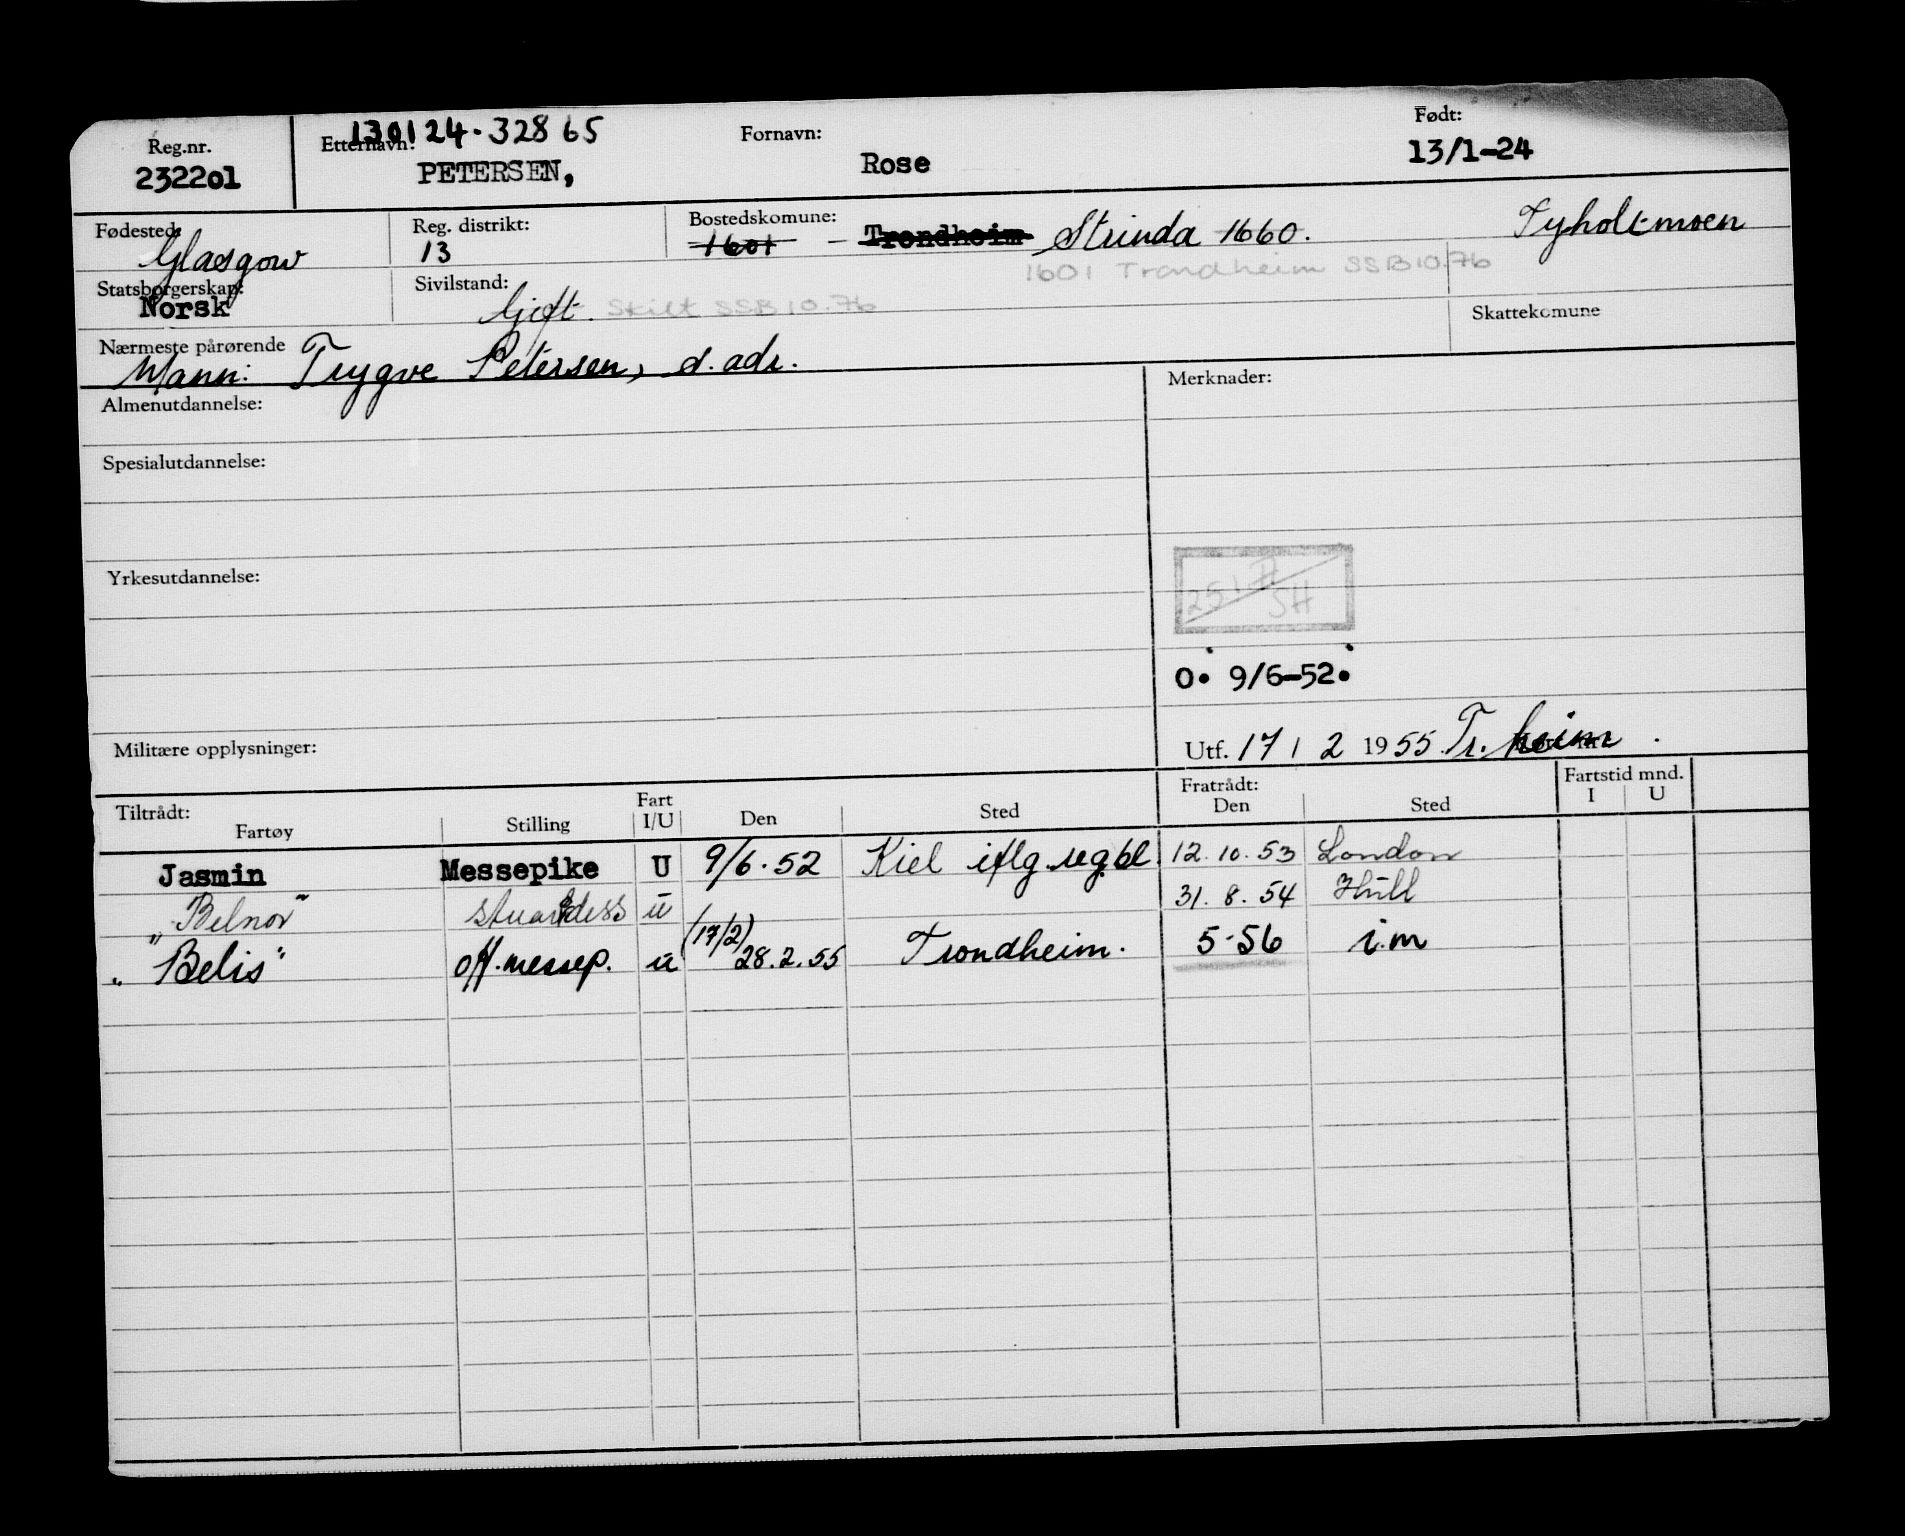 Reg.nr. Etternavn: 130124.32865 Fornavn: Født:
232201 PETERSEN, Rose 13/1-24
Fødested: Reg. distrikt: Bostedskomune:
Glasgow 13 1601 - Trondheim Strinda 1660. Tyholtmoen
1601 Trondheim SSB 10.76
Statsborgerskap: Sivilstand: Skattekomune
Norsk Gift. Skilt SSB 10.76
Nærmeste pårørende
Mann: Trygve Petersen, d. adr.
Almenutdannelse: Merknader:
Spesialutdannelse:
Yrkesutdannelse:
251 SH
O. 9/6-52.
Militære opplysninger: Utf. 17/2 1955 Tr.heim.
Tiltrådt: Fart Fratrådt: Fartstid mnd.
Fartøy Stilling I/U Den Sted Den Sted I U
Jasmin Messepike U 9/6.52 Kiel iflg regbl. 12.10.53 London
"Belnor" stuardess u 31.8.54 Hull
"Belis" off.messep. u (17/2) 28.2.55 Trondheim. 5-56 i.m